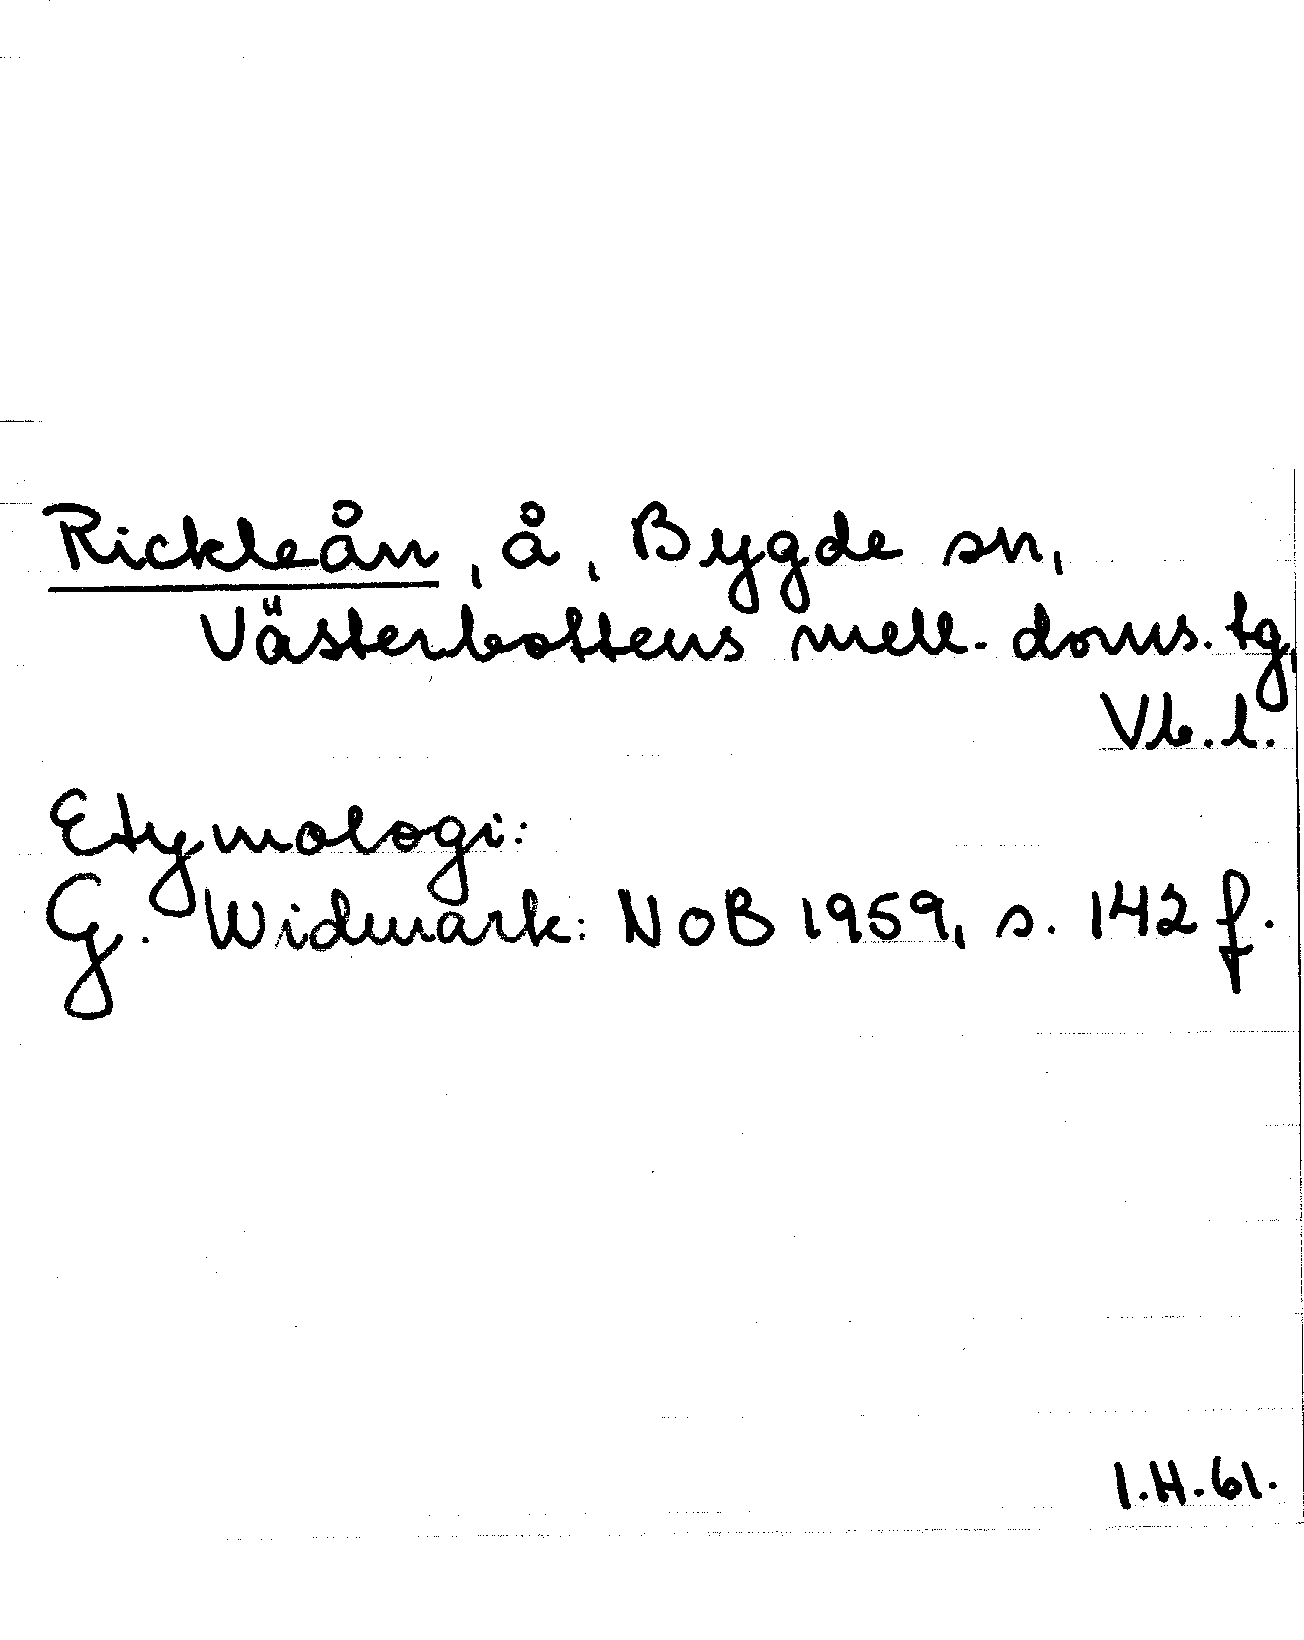 Rickleån, å, Bygde sn,
Västerbottens mell. doms. tg,
Vb. l.
Etymologi:
G. Widmark: NoB 1959, s. 142 f.
I.H. 61.